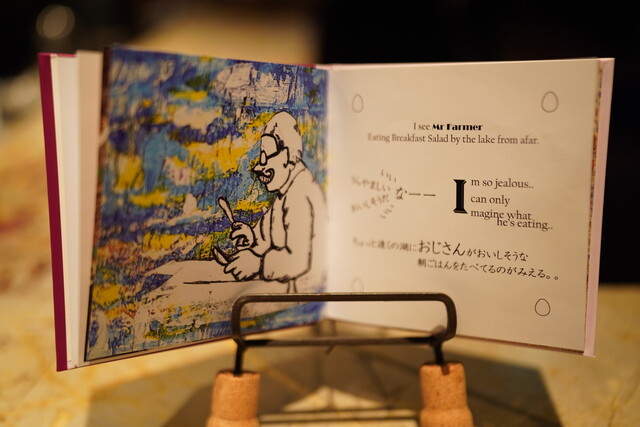 I see Mr Farmer
Eating Breakfast Salad by the lake from afar.
いい
うらやましい
おいしそうだ
いい
なーー
Im so jealous..
can only
magine what
he's eating..
ちょっと遠くの湖におじさんがおいしそうな
朝ごはんをたべてるのがみえる。。